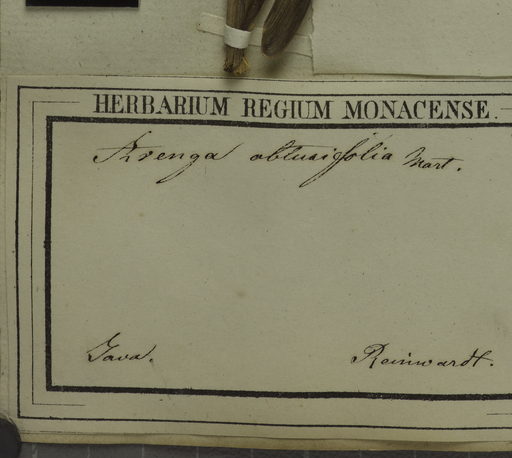 HERBARIUM REGIUM MONACENSE.
Arenga obtusifolia Mart.
Java.
Reinwardt.